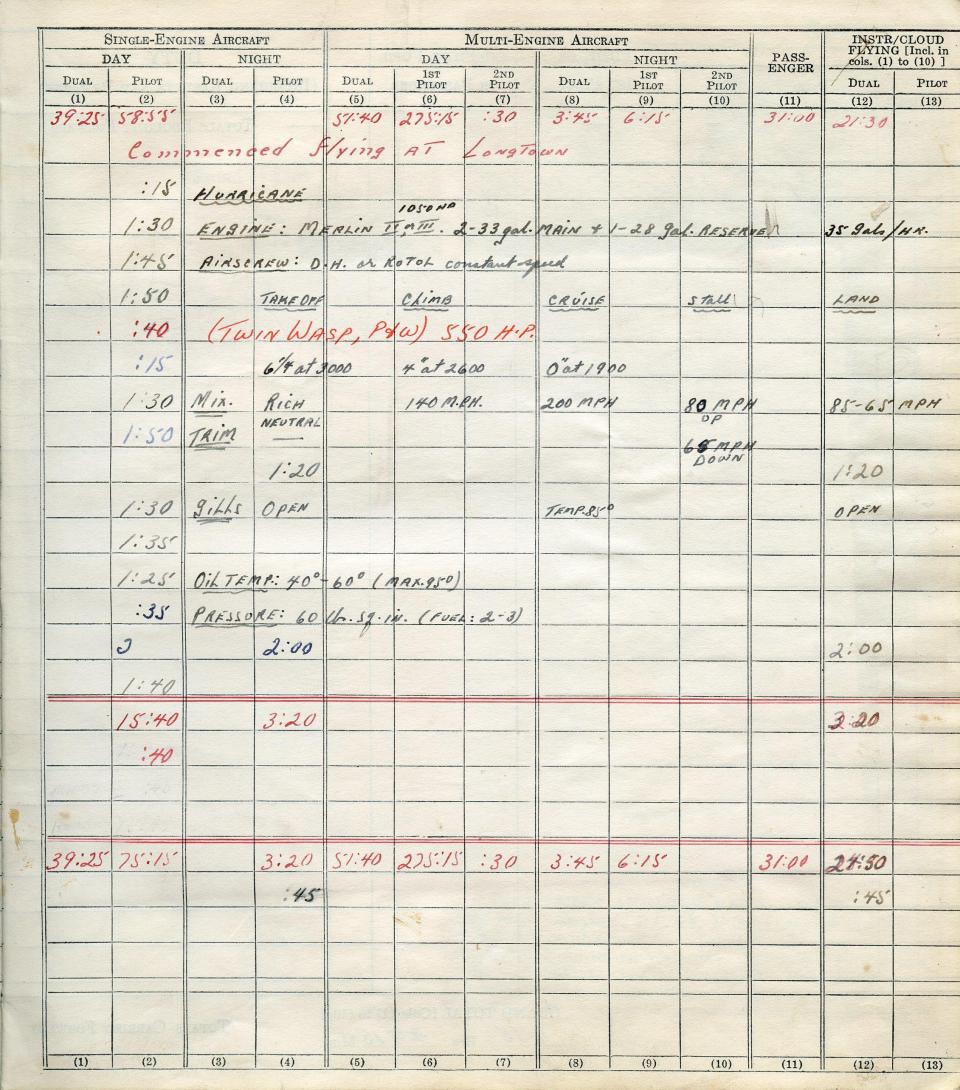 SINGLE-ENGINE AIRCRAFT MULTI-ENGINE AIRCRAFT PASS-ENGER INSTR/CLOUD FLYING [Incl. in cols. (1) to (10) ]
DAY NIGHT DAY NIGHT
DUAL PILOT DUAL PILOT DUAL 1ST PILOT 2ND PILOT DUAL 1ST PILOT 2ND PILOT DUAL PILOT
(1) (2) (3) (4) (5) (6) (7) (8) (9) (10) (11) (12) (13)
39:25 58:55 57:40 275:15 :30 3:45 6:15 31:00 21:30
Commenced flying AT LONGTOWN
:15 HURRICANE
1050 HP
1:30 ENGINE: MERLIN II or III. 2-33 gal. MAIN + 1-28 gal. RESERVE 35 gals/HR.
1:45 AIRSCREW: D.H. or ROTOL constant-speed
1:50 TAKEOFF CLIMB CRUISE Stall LAND
:40 (TWIN WASP, P&W) 550 H.P.
:15 6¼ at 3000 4" at 2600 0" at 1900
1:30 MIX. RICH 140 M.P.H. 200 MPH 80 MPH UP 85-65 MPH
1:50 TRIM NEUTRAL MPH DOWN
1:20 1:20
1:30 GILLS OPEN TEMP. 85° OPEN
1:35
1:25 OIL TEMP: 40°-60° (MAX. 95°)
:35 PRESSURE: 60 lb. sq. in. (FUEL: 2-3)
2:00 2:00
1:40
15:40 3:20 3:20
:40
39:25 75:15 3:20 57:40 275:15 :30 3:45 6:15 31:00 24:50
:45 :45
(1) (2) (3) (4) (5) (6) (7) (8) (9) (10) (11) (12) (13)